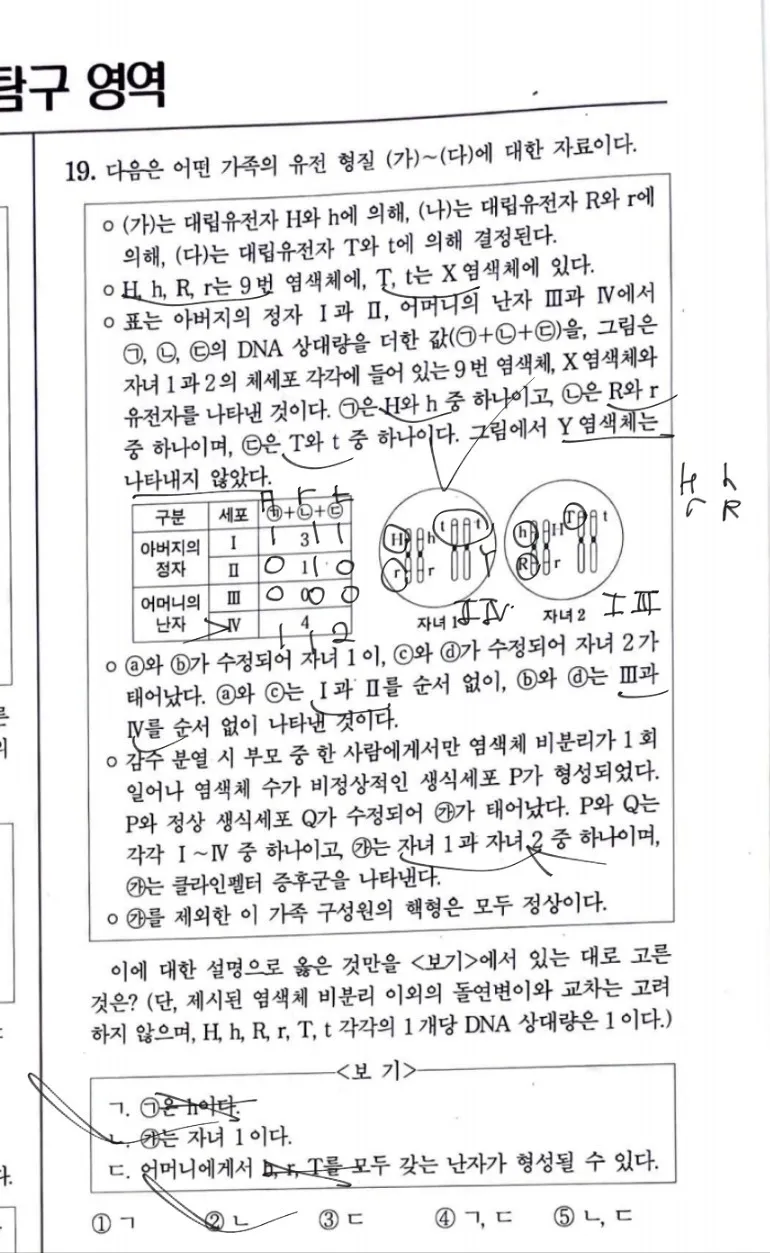 탐구 영역
19. 다음은 어떤 가족의 유전 형질 (가)~(다)에 대한 자료이다.
○ (가)는 대립유전자 H와 h에 의해, (나)는 대립유전자 R와 r에
의해, (다)는 대립유전자 T와 t에 의해 결정된다.
○ H, h, R, r는 9번 염색체에, T, t는 X 염색체에 있다.
○ 표는 아버지의 정자 Ⅰ과 Ⅱ, 어머니의 난자 Ⅲ과 Ⅳ에서
㉠, ㉡, ㉢의 DNA 상대량을 더한 값(㉠+㉡+㉢)을, 그림은
자녀 1과 2의 체세포 각각에 들어 있는 9번 염색체, X 염색체와
유전자를 나타낸 것이다. ㉠은 H와 h 중 하나이고, ㉡은 R와 r
중 하나이며, ㉢은 T와 t 중 하나이다. 그림에서 Y 염색체는
나타내지 않았다.
H h
r R
H r t
구분 세포 ㉠+㉡+㉢
아버지의 정자 Ⅰ 1 3 1 1
Ⅱ 0 1 1 0
어머니의 난자 Ⅲ 0 0 0 0
Ⅳ 4
1 1 2
H h t t
r r Y
h H T t
R r
자녀 1 Ⅱ Ⅳ
자녀 2 Ⅰ Ⅲ
○ ⓐ와 ⓑ가 수정되어 자녀 1이, ⓒ와 ⓓ가 수정되어 자녀 2가
태어났다. ⓐ와 ⓒ는 Ⅰ과 Ⅱ를 순서 없이, ⓑ와 ⓓ는 Ⅲ과
Ⅳ를 순서 없이 나타낸 것이다.
○ 감수 분열 시 부모 중 한 사람에게서만 염색체 비분리가 1회
일어나 염색체 수가 비정상적인 생식세포 P가 형성되었다.
P와 정상 생식세포 Q가 수정되어 ㉮가 태어났다. P와 Q는
각각 Ⅰ~Ⅳ 중 하나이고, ㉮는 자녀 1과 자녀 2 중 하나이며,
㉮는 클라인펠터 증후군을 나타낸다.
○ ㉮를 제외한 이 가족 구성원의 핵형은 모두 정상이다.
이에 대한 설명으로 옳은 것만을 <보기>에서 있는 대로 고른
것은? (단, 제시된 염색체 비분리 이외의 돌연변이와 교차는 고려
하지 않으며, H, h, R, r, T, t 각각의 1개당 DNA 상대량은 1이다.)
<보 기>
ㄱ. ㉠은 h이다.
ㄴ. ㉮는 자녀 1이다.
ㄷ. 어머니에게서 h, r, T를 모두 갖는 난자가 형성될 수 있다.
① ㄱ ② ㄴ ③ ㄷ ④ ㄱ, ㄷ ⑤ ㄴ, ㄷ